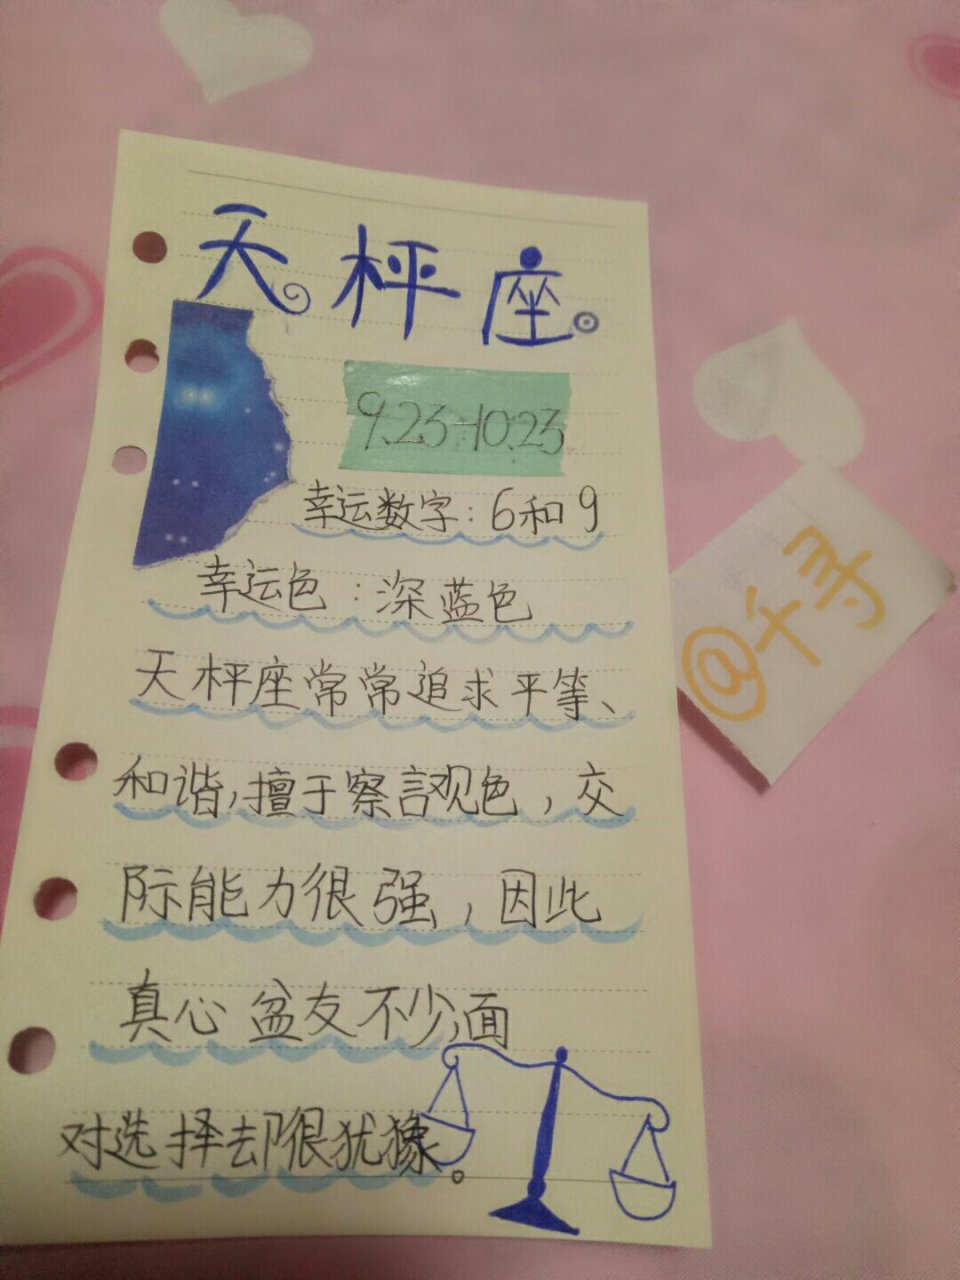 天秤座
9.23-10.23
幸运数字：6和9
幸运色：深蓝色
天秤座常常追求平等、
和谐，擅于察言观色，交
际能力很强，因此
真心盆友不少，面
对选择却很犹豫。
@千寻